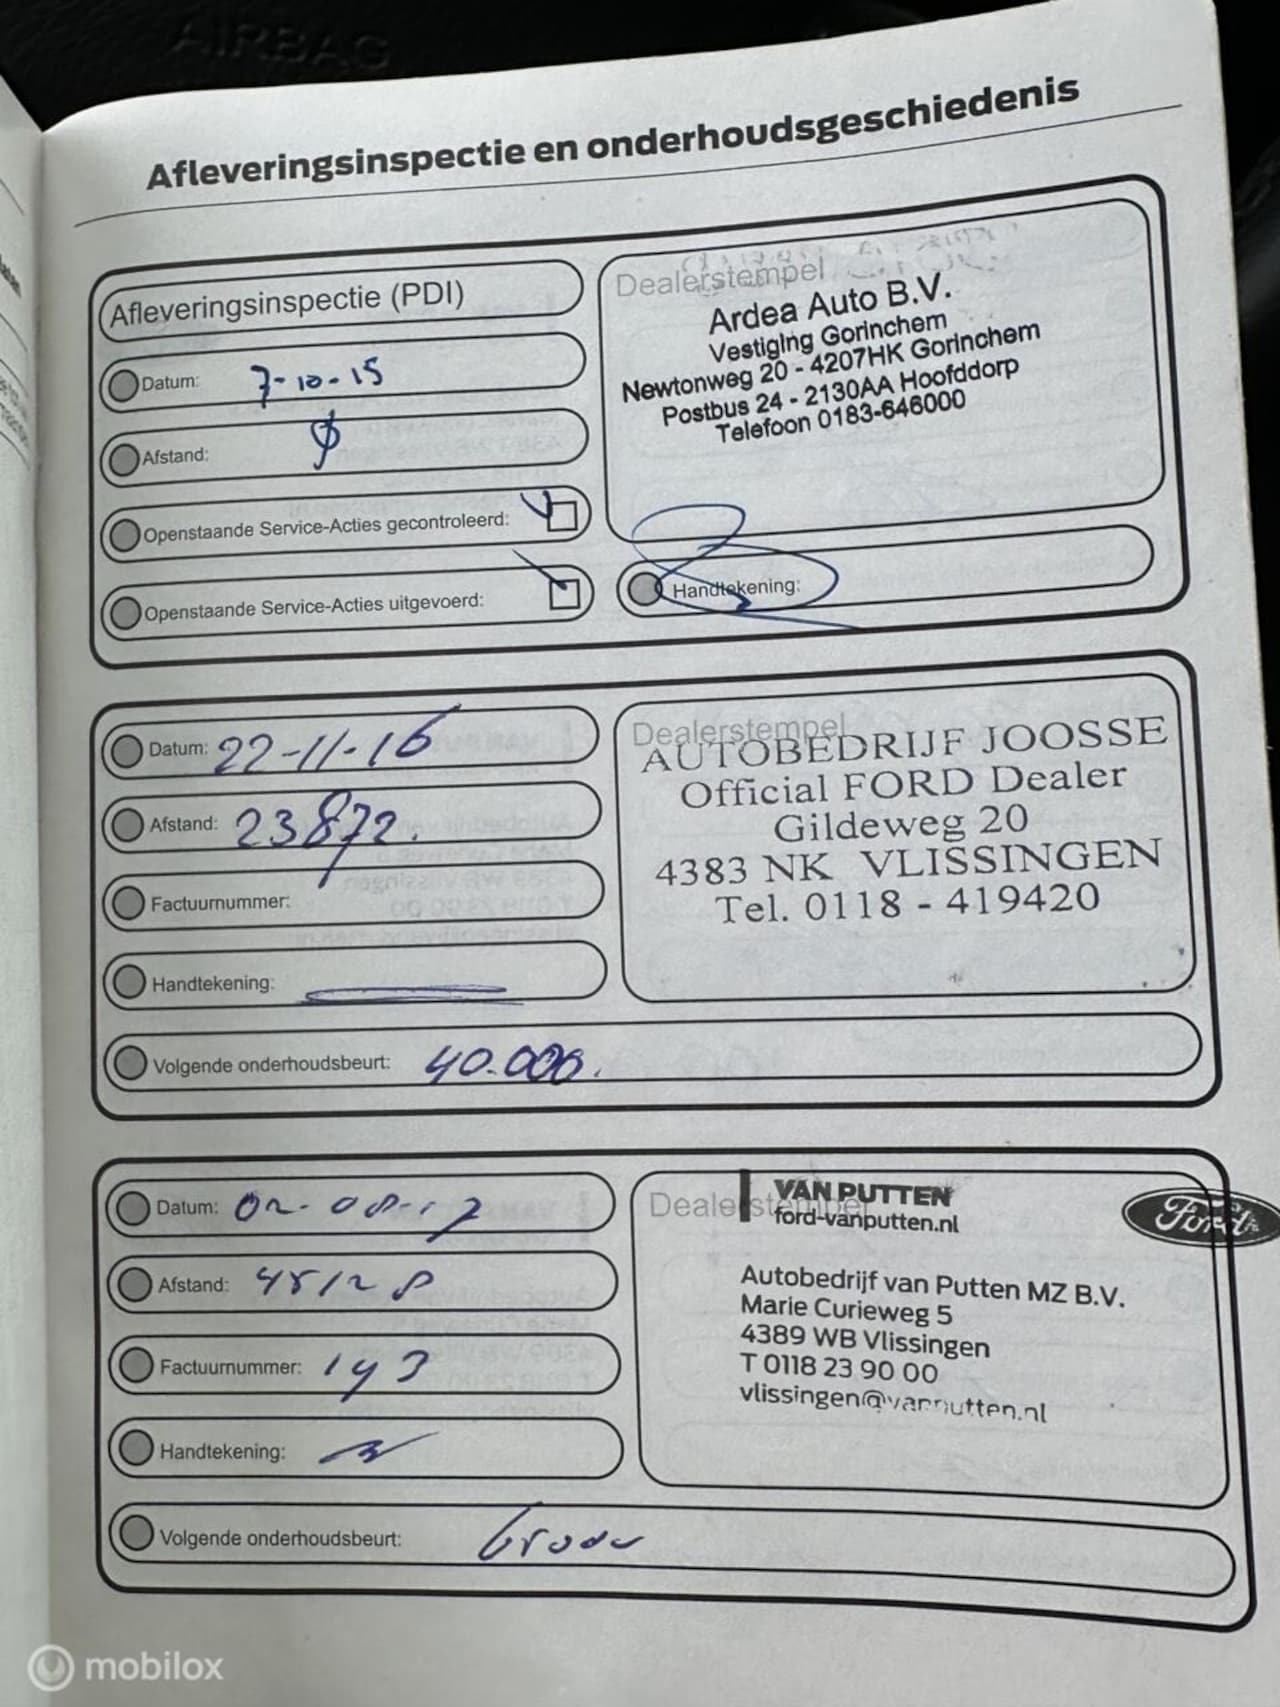 AIRBAG
Afleveringsinspectie en onderhoudsgeschiedenis
Afleveringsinspectie (PDI)
Datum: 7-10-15
Afstand: ∅
Openstaande Service-Acties gecontroleerd:
Openstaande Service-Acties uitgevoerd:
Dealerstempel
Ardea Auto B.V.
Vestiging Gorinchem
Newtonweg 20 - 4207HK Gorinchem
Postbus 24 - 2130AA Hoofddorp
Telefoon 0183-646000
Handtekening:
Datum: 22-11-16
Afstand: 23872.
Factuurnummer:
Handtekening:
Volgende onderhoudsbeurt: 40.000.
Dealerstempel
AUTOBEDRIJF JOOSSE
Official FORD Dealer
Gildeweg 20
4383 NK VLISSINGEN
Tel. 0118 - 419420
Datum: 02-08-17
Afstand: 45128
Factuurnummer:
Handtekening:
Volgende onderhoudsbeurt:
Dealerstempel
VAN PUTTEN
ford-vanputten.nl
Ford
Autobedrijf van Putten MZ B.V.
Marie Curieweg 5
4389 WB Vlissingen
T 0118 23 90 00
vlissingen@vanputten.nl
mobilox